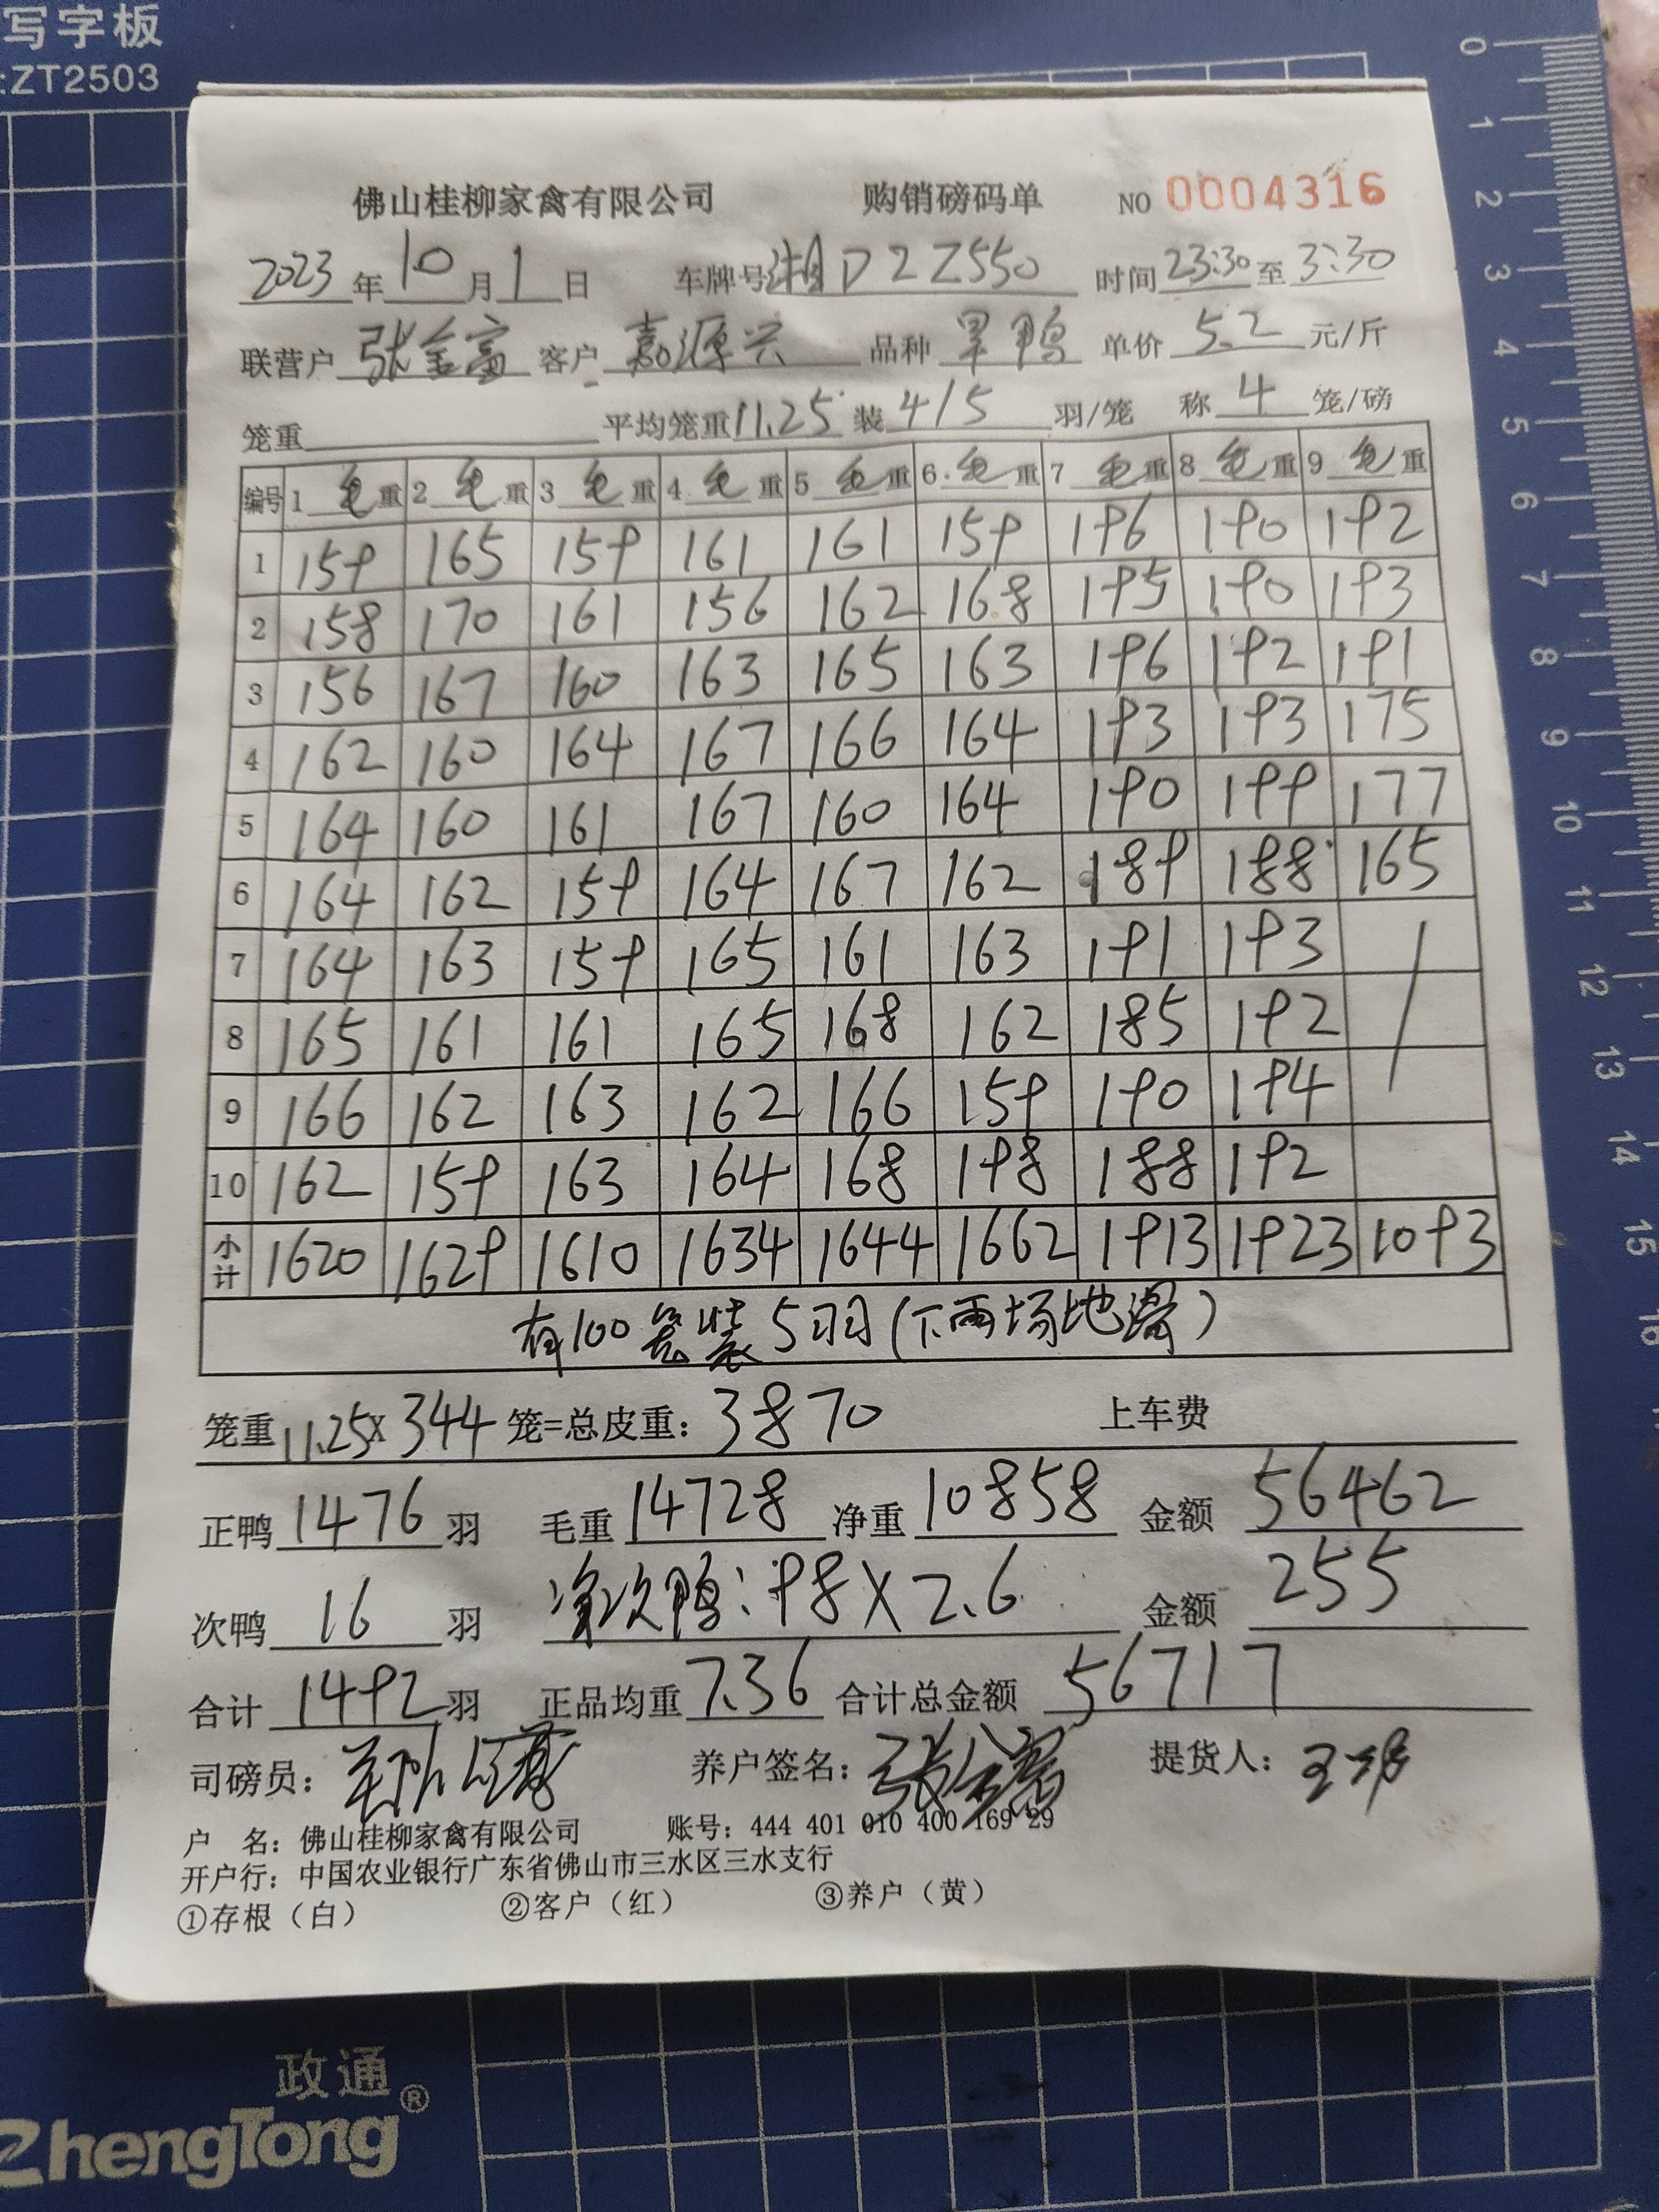 写字板
:ZT2503
佛山桂柳家禽有限公司 购销磅码单 NO 0004316
2023年10月1日 车牌号湘D2Z550 时间23:30至3:30
联营户 张金富 客户 嘉源兴 品种 旱鸭 单价 5.2 元/斤
笼重 平均笼重11.25 装4/5 羽/笼 称4笼/磅
编号 1 毛重 2 毛重 3 毛重 4 毛重 5 毛重 6 毛重 7 毛重 8 毛重 9 毛重
1 159 165 159 161 161 159 196 190 192
2 158 170 161 156 162 168 195 190 193
3 156 167 160 163 165 163 196 192 191
4 162 160 164 167 166 164 193 193 175
5 164 160 161 167 160 164 190 199 177
6 164 162 159 164 167 162 189 188 165
7 164 163 159 165 161 163 191 193
8 165 161 161 165 168 162 185 192
9 166 162 163 162 166 159 190 194
10 162 159 163 164 168 198 188 192
小计 1620 1629 1610 1634 1644 1662 1913 1923 1093
有100笼装5羽(下雨场地滑)
笼重11.25X344笼=总皮重：3870 上车费
正鸭1476羽 毛重14728 净重10858 金额 56462
次鸭 16 羽 净次鸭：98X2.6 金额 255
合计1492羽 正品均重7.36 合计总金额 56717
司磅员： 养户签名：张金富 提货人：
户 名：佛山桂柳家禽有限公司 账号：444 401 010 400 169 29
开户行：中国农业银行广东省佛山市三水区三水支行
①存根（白） ②客户（红） ③养户（黄）
政通®
ZhengTong
0
1
2
3
4
5
6
7
8
9
10
11
12
13
14
15
16